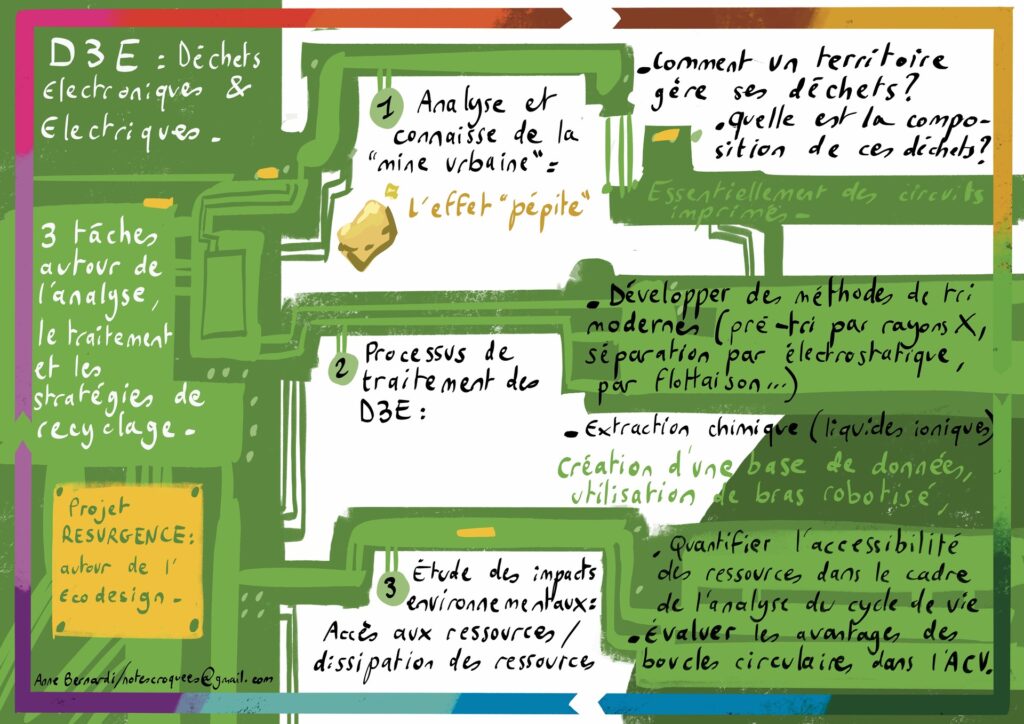 D3E : Déchets
Electroniques &
Electriques.
3 tâches
autour de
l'analyse,
le traitement
et les
stratégies de
recyclage.
Projet
RESURGENCE:
autour de l'
Eco design.
Anne Bernardi/notescroquees@gmail.com
1 Analyse et
connaisse de la
"mine urbaine":
L'effet "pépite"
.Comment un territoire
gère ses déchets?
.Quelle est la compo-
sition de ces déchets?
Essentiellement des circuits
imprimés-
2 Processus de
traitement des
D3E :
. Développer des méthodes de tri
modernes (pré-tri par rayons X,
séparation par électrostatique,
par flottaison...)
. Extraction chimique (liquides ioniques)
Création d'une base de données,
utilisation de bras robotisé,
3 Étude des impacts
environnementaux:
Accès aux ressources /
dissipation des ressources
. Quantifier l'accessibilité
des ressources dans le cadre
de l'analyse du cycle de vie
. Évaluer les avantages des
boucles circulaires dans l'ACV.